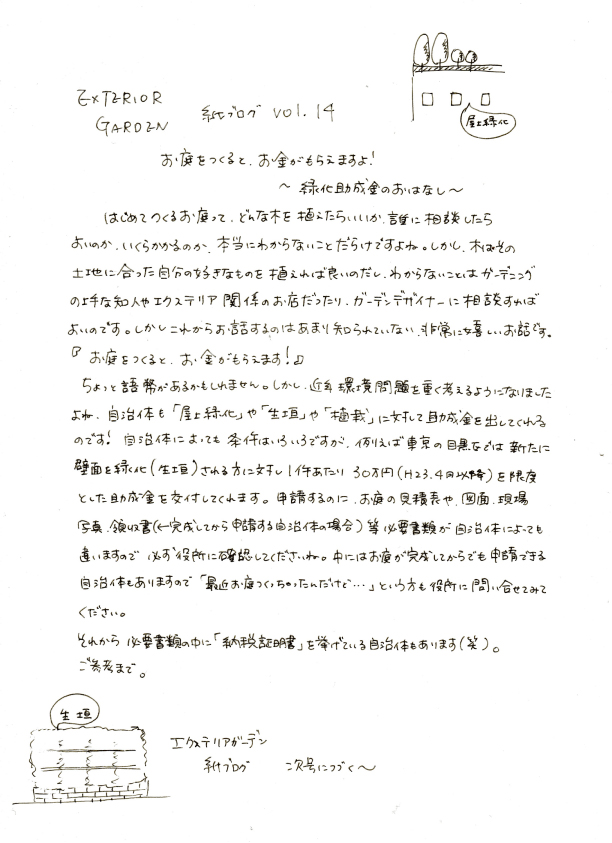 EXTERIOR
GARDEN
紙ブログ vol.14
屋上緑化
お庭をつくると、お金がもらえますよ!
～ 緑化助成金のおはなし～
はじめてつくるお庭って、どんな木を植えたらいいか、誰に相談したら
よいのか、いくらかかるのか、本当にわからないことだらけですよね。しかし、木はその
土地に合った自分の好きなものを植えれば良いのだし、わからないことはガーデニング
の上手な知人やエクステリア関係のお店だったり、ガーデンデザイナーに相談すれば
よいのです。しかしこれからお話するのはあまり知られていない、非常に嬉しいお話です。
『お庭をつくると、お金がもらえます!』
ちょっと語弊があるかもしれません。しかし、近年環境問題を重く考えるようになりました
よね。自治体も「屋上緑化」や「生垣」や「植栽」に対して助成金を出してくれる
のです! 自治体によっても条件はいろいろですが、例えば東京の目黒などでは新たに
壁面を緑化(生垣)される方に対し1件あたり30万円(H23.4月以降)を限度
とした助成金を交付してくれます。申請するのに、お庭の見積表や、図面、現場
写真、領収書(←完成してから申請する自治体の場合)等必要書類が自治体によっても
違いますので必ず役所に確認してくださいね。中にはお庭が完成してからでも申請できる
自治体もありますので「最近お庭つくっちゃったんだけど…」という方も役所に問い合せてみて
ください。
それから必要書類の中に「納税証明書」を挙げている自治体もあります(笑)。
ご参考まで。
生垣
エクステリアガーデン
紙ブログ 次号につづく～